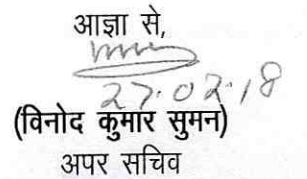 आज्ञा से,
27.02.18
(विनोद कुमार सुमन)
अपर सचिव